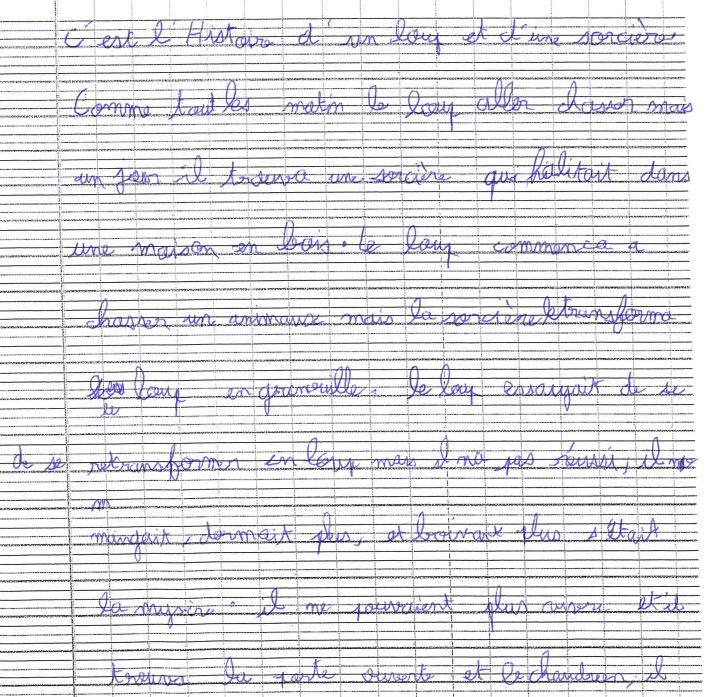 C'est l'Histoire d'un loup et d'une sorcière
Comme tout les matin le loup aller chasser mais
un jour il trouva une sorcière qui habitait dans
une maison en bois. le loup commenca a
chasser un animaux mais la sorcière transforma
le loup en grenouille. le loup essayait de se
de se retransformer en loup mais il na pas réussi, il
mangait, dormait plus, et boivait plus s était
la mysère. il ne pourraient plus et il
trouva la porte ouverte et le chaudron, il